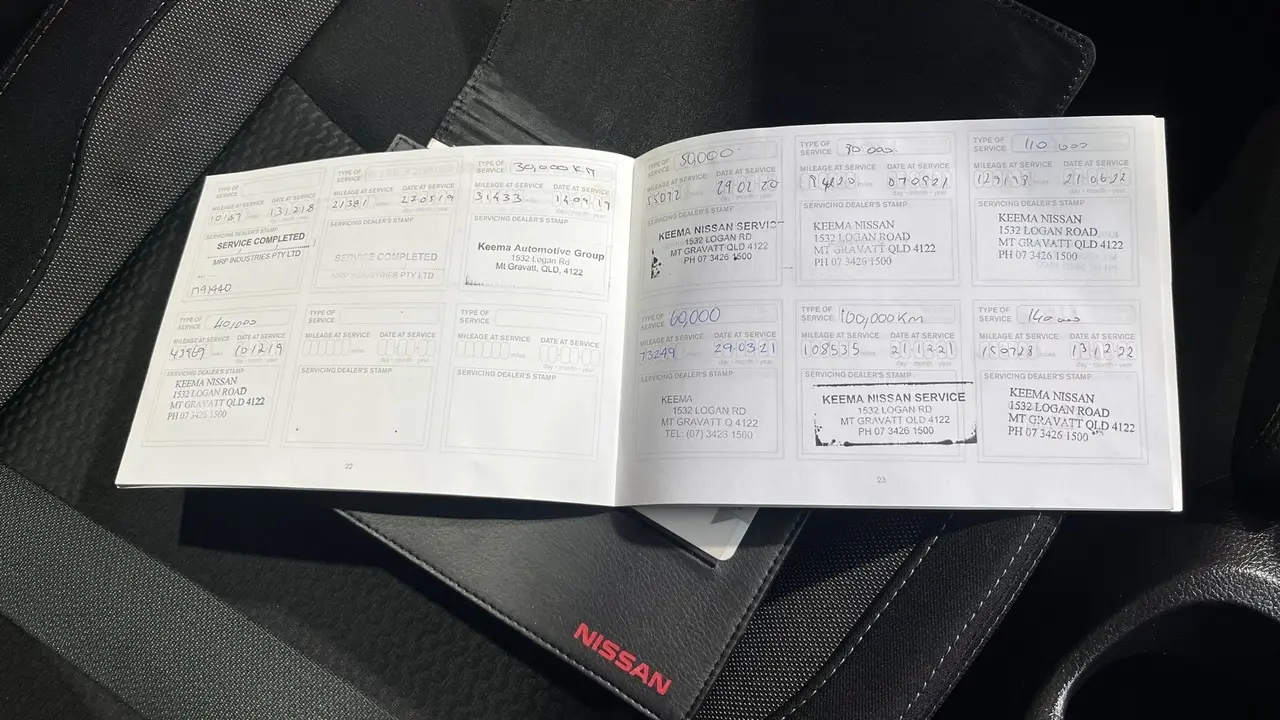 TYPE OF SERVICE
MILEAGE AT SERVICE DATE AT SERVICE
10167 miles 13 12 18
SERVICING DEALER'S STAMP
SERVICE COMPLETED
MRP INDUSTRIES PTY LTD
TYPE OF SERVICE
MILEAGE AT SERVICE DATE AT SERVICE
21381 miles 22 05 19
SERVICING DEALER'S STAMP
SERVICE COMPLETED
MRP INDUSTRIES PTY LTD
TYPE OF SERVICE 30,000 KM
MILEAGE AT SERVICE DATE AT SERVICE
31433 miles 14 09 19
day - month - year
SERVICING DEALER'S STAMP
Keema Automotive Group
1532 Logan Rd
Mt Gravatt, QLD, 4122
TYPE OF SERVICE 40,000
MILEAGE AT SERVICE DATE AT SERVICE
43969 miles 10 12 19
day - month - year
SERVICING DEALER'S STAMP
KEEMA NISSAN
1532 LOGAN ROAD
MT GRAVATT QLD 4122
PH 07 3426 1500
TYPE OF SERVICE
MILEAGE AT SERVICE DATE AT SERVICE
miles
day - month - year
SERVICING DEALER'S STAMP
TYPE OF SERVICE
MILEAGE AT SERVICE DATE AT SERVICE
miles
day - month - year
SERVICING DEALER'S STAMP
22
TYPE OF SERVICE 50,000
MILEAGE AT SERVICE DATE AT SERVICE
55072 miles 29 02 20
day - month - year
SERVICING DEALER'S STAMP
KEEMA NISSAN SERVICE
1532 LOGAN RD
MT GRAVATT QLD 4122
PH 07 3426 1500
TYPE OF SERVICE 80 000
MILEAGE AT SERVICE DATE AT SERVICE
miles
day - month - year
SERVICING DEALER'S STAMP
KEEMA NISSAN
1532 LOGAN ROAD
MT GRAVATT QLD 4122
PH 07 3426 1500
TYPE OF SERVICE 110 000
MILEAGE AT SERVICE DATE AT SERVICE
miles 21 06 22
day - month - year
SERVICING DEALER'S STAMP
KEEMA NISSAN
1532 LOGAN ROAD
MT GRAVATT QLD 4122
PH 07 3426 1500
TYPE OF SERVICE 60,000
MILEAGE AT SERVICE DATE AT SERVICE
73249 miles 29 03 21
day - month - year
SERVICING DEALER'S STAMP
KEEMA
1532 LOGAN RD
MT GRAVATT Q LD 4122
TEL: (07) 3426 1500
TYPE OF SERVICE 100,000 Km
MILEAGE AT SERVICE DATE AT SERVICE
108535 miles 21 12 21
day - month - year
SERVICING DEALER'S STAMP
KEEMA NISSAN SERVICE
1532 LOGAN RD
MT GRAVATT QLD 4122
PH 07 3426 1500
TYPE OF SERVICE 140 000
MILEAGE AT SERVICE DATE AT SERVICE
150728 miles 13 12 22
day - month - year
SERVICING DEALER'S STAMP
KEEMA NISSAN
1532 LOGAN ROAD
MT GRAVATT QLD 4122
PH 07 3426 1500
23
NISSAN